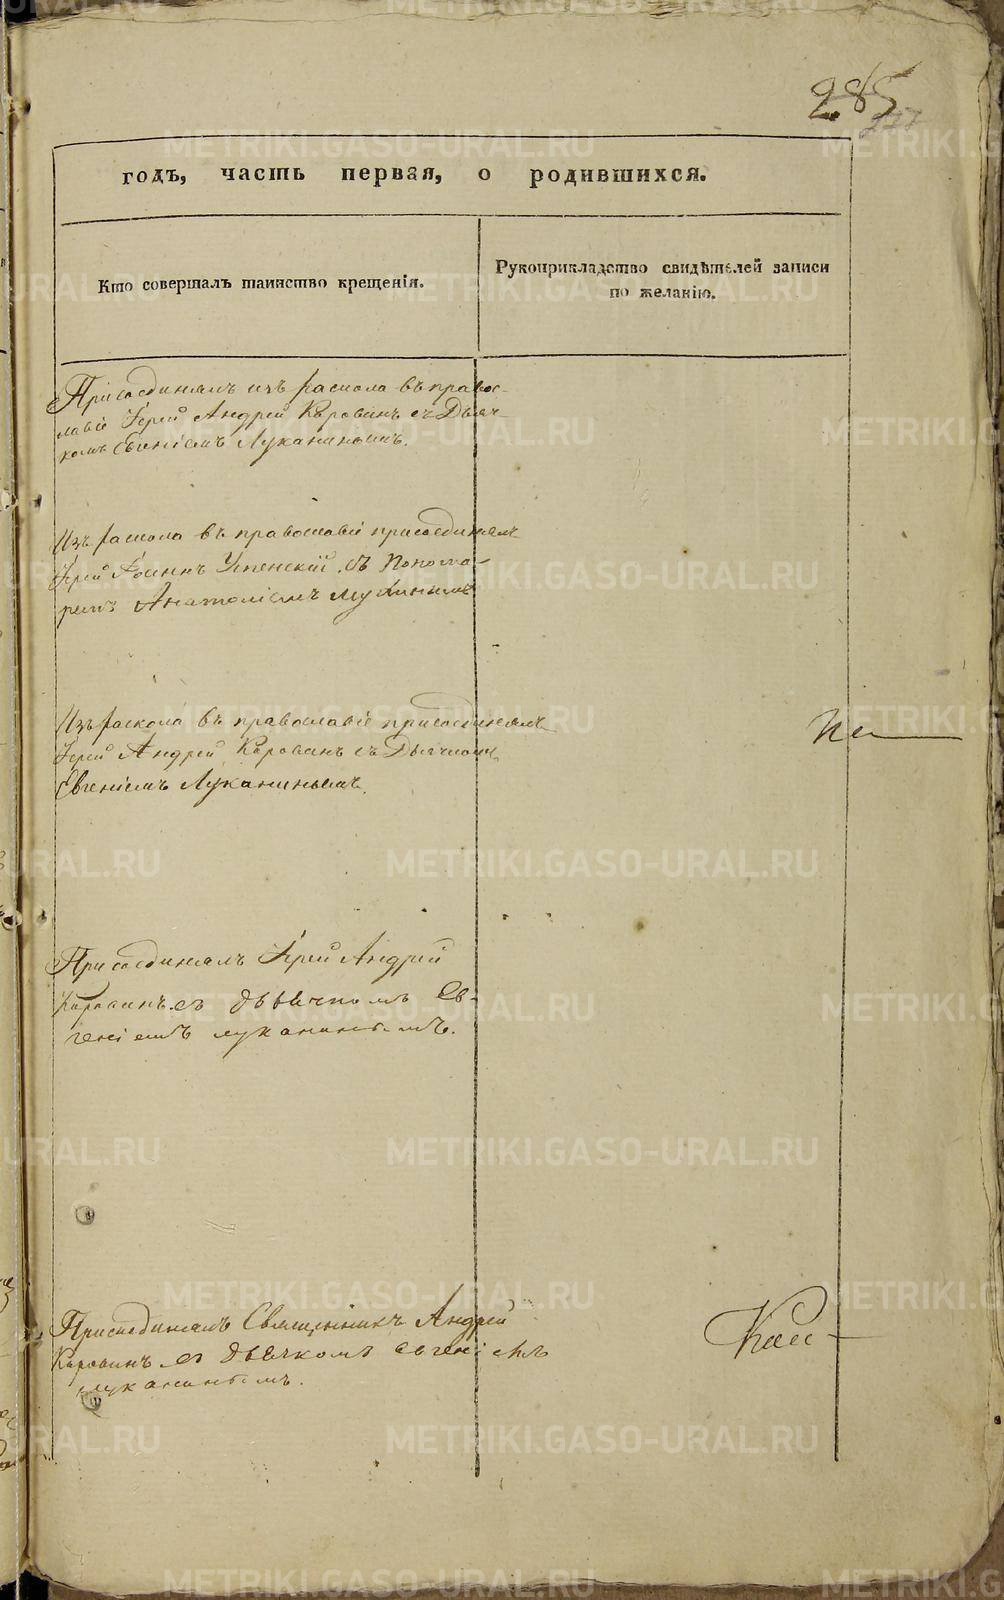 285
годъ, часть первая, о родившихся.
Кто совершалъ таинство крещенія.
Рукоприкладство свидѣтелей записи
по желанію.
Присоединялъ изъ раскола въ правос-
лавіе Іерей Андрей Коровинъ съ Дьяч-
комъ Евгеніемъ Луканинымъ.
Изъ раскола въ православіе присоединялъ
Іерей Іоаннъ Успенскій съ Понома-
ремъ Анатоліемъ
Изъ раскола въ православіе присоединялъ
Іерей Андрей Коровинъ съ Дьячкомъ
Евгеніемъ Луканинымъ.
Присоединялъ Іерей Андрей
Коровинъ съ дьячкомъ Ев-
геніемъ луканинымъ.
Присоединялъ Священникъ Андрей
Коровинъ съ дьячкомъ евгеніемъ
луканинымъ.
METRIKI.GASO-URAL.RU